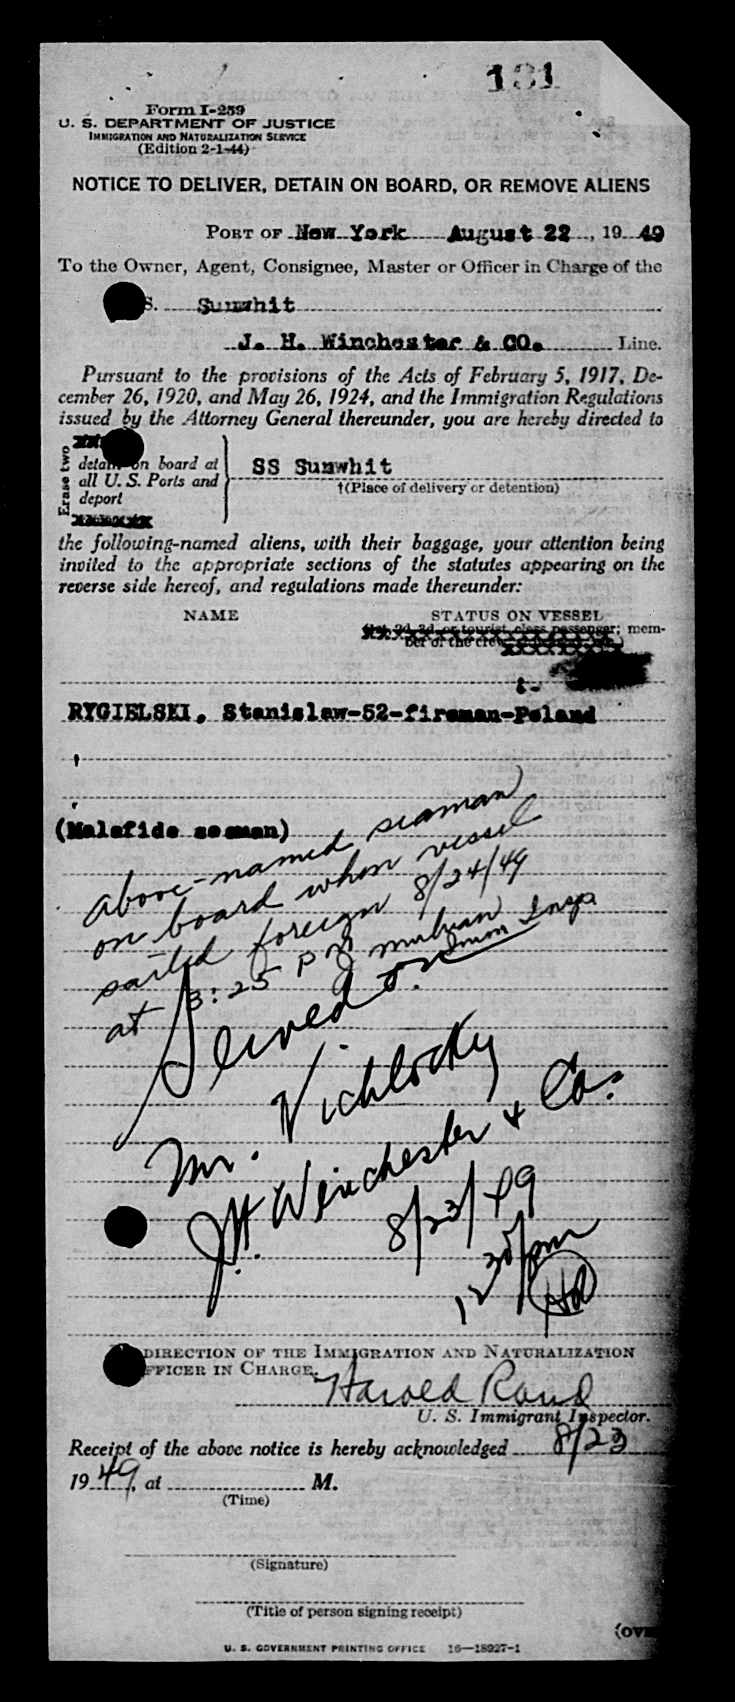 131
Form I-259
U. S. DEPARTMENT OF JUSTICE
IMMIGRATION AND NATURALIZATION SERVICE
(Edition 2-1-44)
NOTICE TO DELIVER, DETAIN ON BOARD, OR REMOVE ALIENS
PORT OF New York August 22, 1949
To the Owner, Agent, Consignee, Master or Officer in Charge of the
S. Sunwhit
J. H. Winchester & CO. Line.
Pursuant to the provisions of the Acts of February 5, 1917, De-
cember 26, 1920, and May 26, 1924, and the Immigration Regulations
issued by the Attorney General thereunder, you are hereby directed to
Erase two
detain on board at
all U. S. Ports and
deport
SS Sunwhit
†(Place of delivery or detention)
the following-named aliens, with their baggage, your attention being
invited to the appropriate sections of the statutes appearing on the
reverse side hereof, and regulations made thereunder:
NAME STATUS ON VESSEL
(1st, 2d, 3d, or tourist class passenger; mem-
ber of the crew
RYGIELSKI, Stanislaw-52-fireman-Poland
(Malafide seaman)
above-named seaman
on board when vessel
sailed foreign 8/24/49
at 3:25 PM
Served on
Mr. Vichlocky
J.H. Winchester & Co.
8/23/49
1230/pm
DIRECTION OF THE IMMIGRATION AND NATURALIZATION
OFFICER IN CHARGE.
Harold Rand
U. S. Immigrant Inspector.
Receipt of the above notice is hereby acknowledged 8/23
1949, at M.
(Time)
(Signature)
(Title of person signing receipt)
(ove
U. S. GOVERNMENT PRINTING OFFICE 16—18927-1